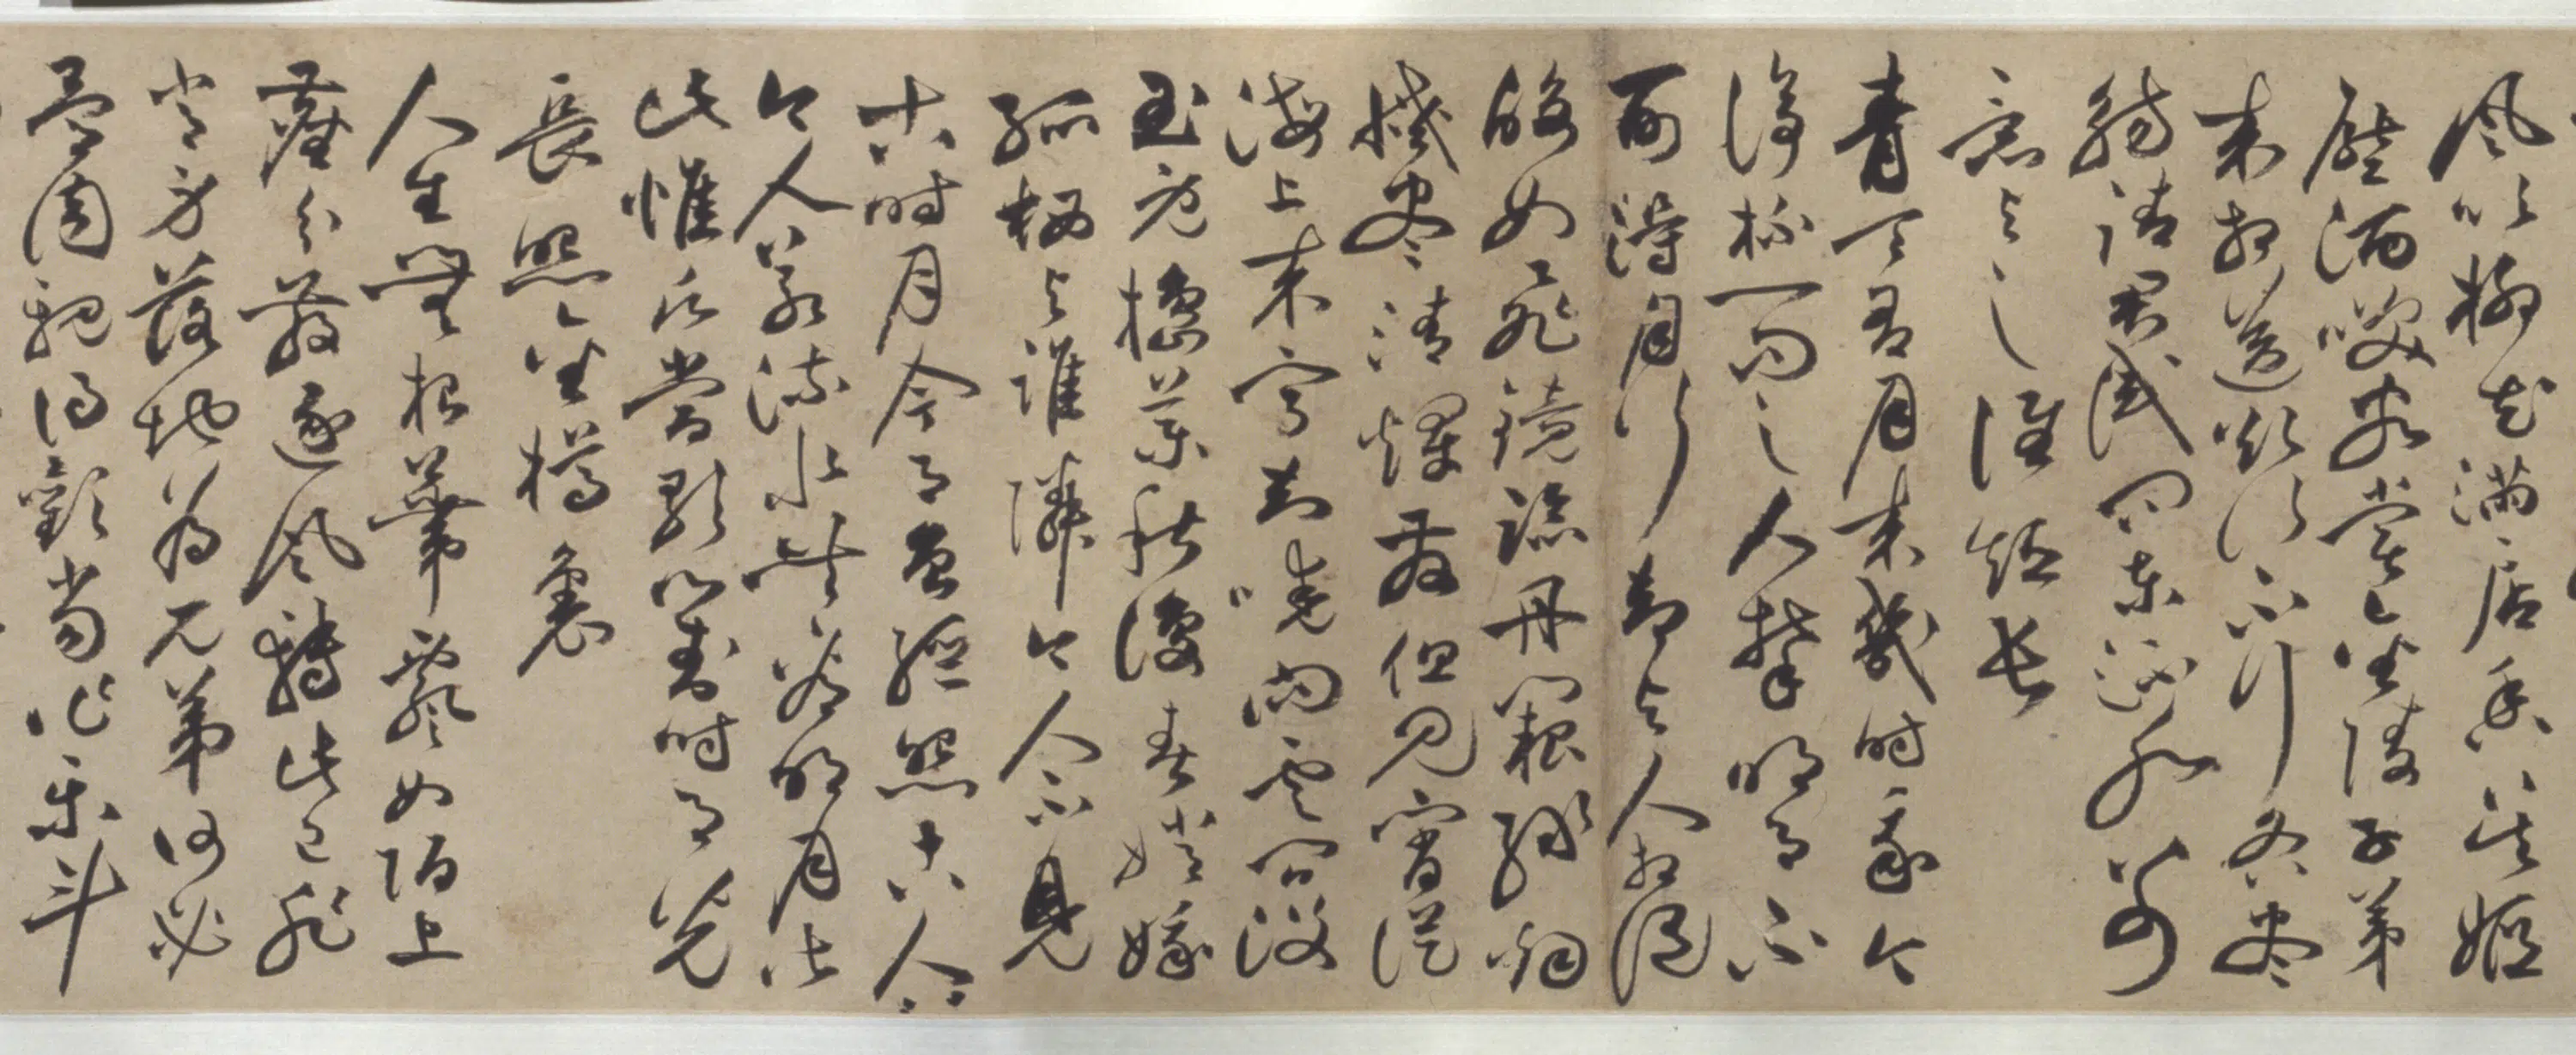 風吹柳花滿店香吳姬
壓酒喚客嘗金陵子弟
來相送欲行不行各盡
觴請君試問東流水別
意與之誰短長
青天有月來幾時我今
停杯一問之人攀明月不
可得月行卻與人相隨
皎如飛鏡臨丹闕綠烟
滅盡清輝發但見宵從
海上來寧知曉向雲間沒
玉兔擣藥秋復春嫦娥
孤栖與誰鄰今人不見
古時月今月曾經照古人古
今人若流水共看明月皆
此惟願當歌對酒時月光
長照金樽裏
人生無根蒂飄如陌上
塵分散逐風轉此已非
常身落地為兄弟何必
骨肉親得歡當作樂斗